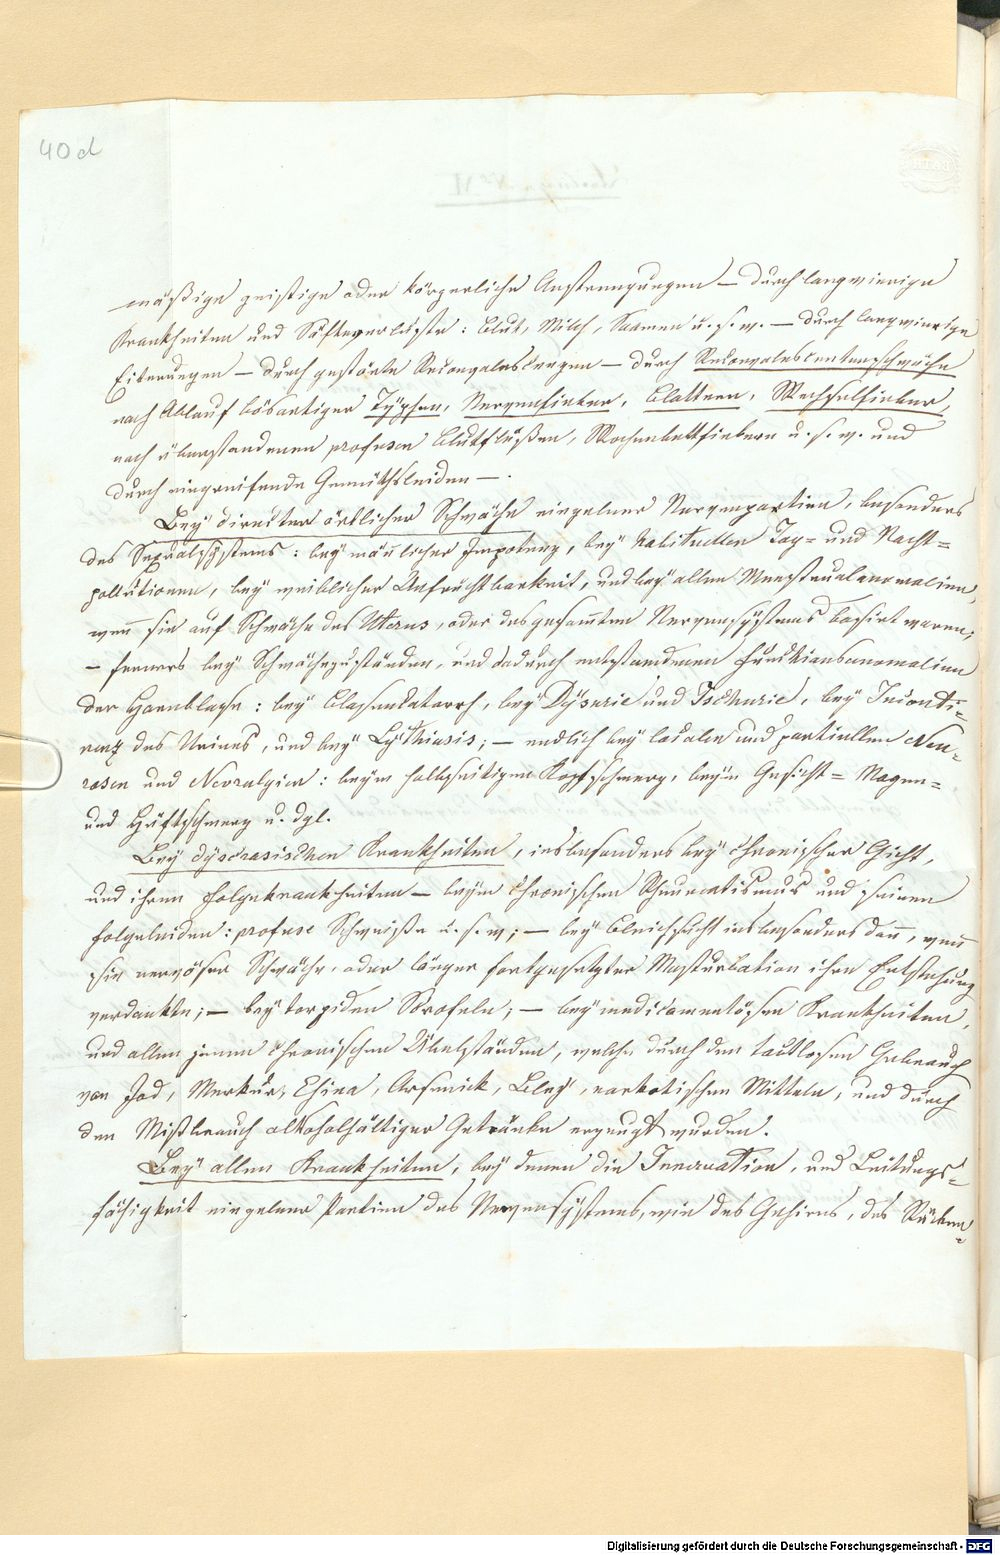 40 d
mäßige geistige oder körperliche Anstrengungen – durch langwierige
Krankheiten und Säfteverluste: Blut, Milch, Saamen u. s. w. – durch langwierige
Eiterungen – durch gestörte Reconvalescenzen – durch Reconvalescentenschwäche
nach Ablauf bösartiger Typhen, Nervenfieber, Blattern, Wechselfieber,
nach überstandenen profusen Blutflüßen, Wochenbettfiebern u. s. w. und
durch eingreifende Gemüthsleiden –.
Bey direkter örtlicher Schwäche einzelner Nervenpartien, besonders
des Sexualsystems: bey mänlicher Impotenz, bey habituellen Tag= und Nacht=
pollutionen, bey weiblicher Unfruchtbarkeit, und bey allen Menstrualanomalien,
wenn sie auf Schwäche des Uterus, oder des gesamten Nervensystems basirt waren;
– ferners bey Schwächezuständen, und dadurch entstandenen Funktionsanomalien
der Harnblase: bey Blasenkatarrh, bey Dysurie und Ischurie, bey Inconti=
nenz des Urines, und bey Lythiasis; – endlich bey localen und partiellen Neu=
rosen und Nevralgien: beym halbseitigen Kopfschmerz, beym Gesicht= Magen=
und Hüftschmerz u. dgl.
Bey dyscrasischen Krankheiten, insbesonders bey chronischer Gicht,
und ihren Folgekrankheiten – beym chronischen Rheumatismus und seinen
Folgeleiden: profuse Schweiße u. s. w; – bey Bleichsucht insbesonders dann, wenn
sie nervöser Schwäche, oder länger fortgesetzter Masturbation ihre Entstehung
verdankte; – bey torpiden Scrofeln; – bey medicamentösen Krankheiten,
und allen jenen chronischen Übelständen, welche durch den tactlosen Gebrauch
von Jod, Merkur, China, Arsenick, Bley, narkotischen Mitteln, und durch
den Mißbrauch alkoholhältiger Getränke erzeugt wurden.
Bey allen Krankheiten, bey denen die Innervation, und Leitungs=
fähigkeit einzelner Partien des Nervensystems, wie des Gehirns, des Rücken=
Digitalisierung gefördert durch die Deutsche Forschungsgemeinschaft - DFG